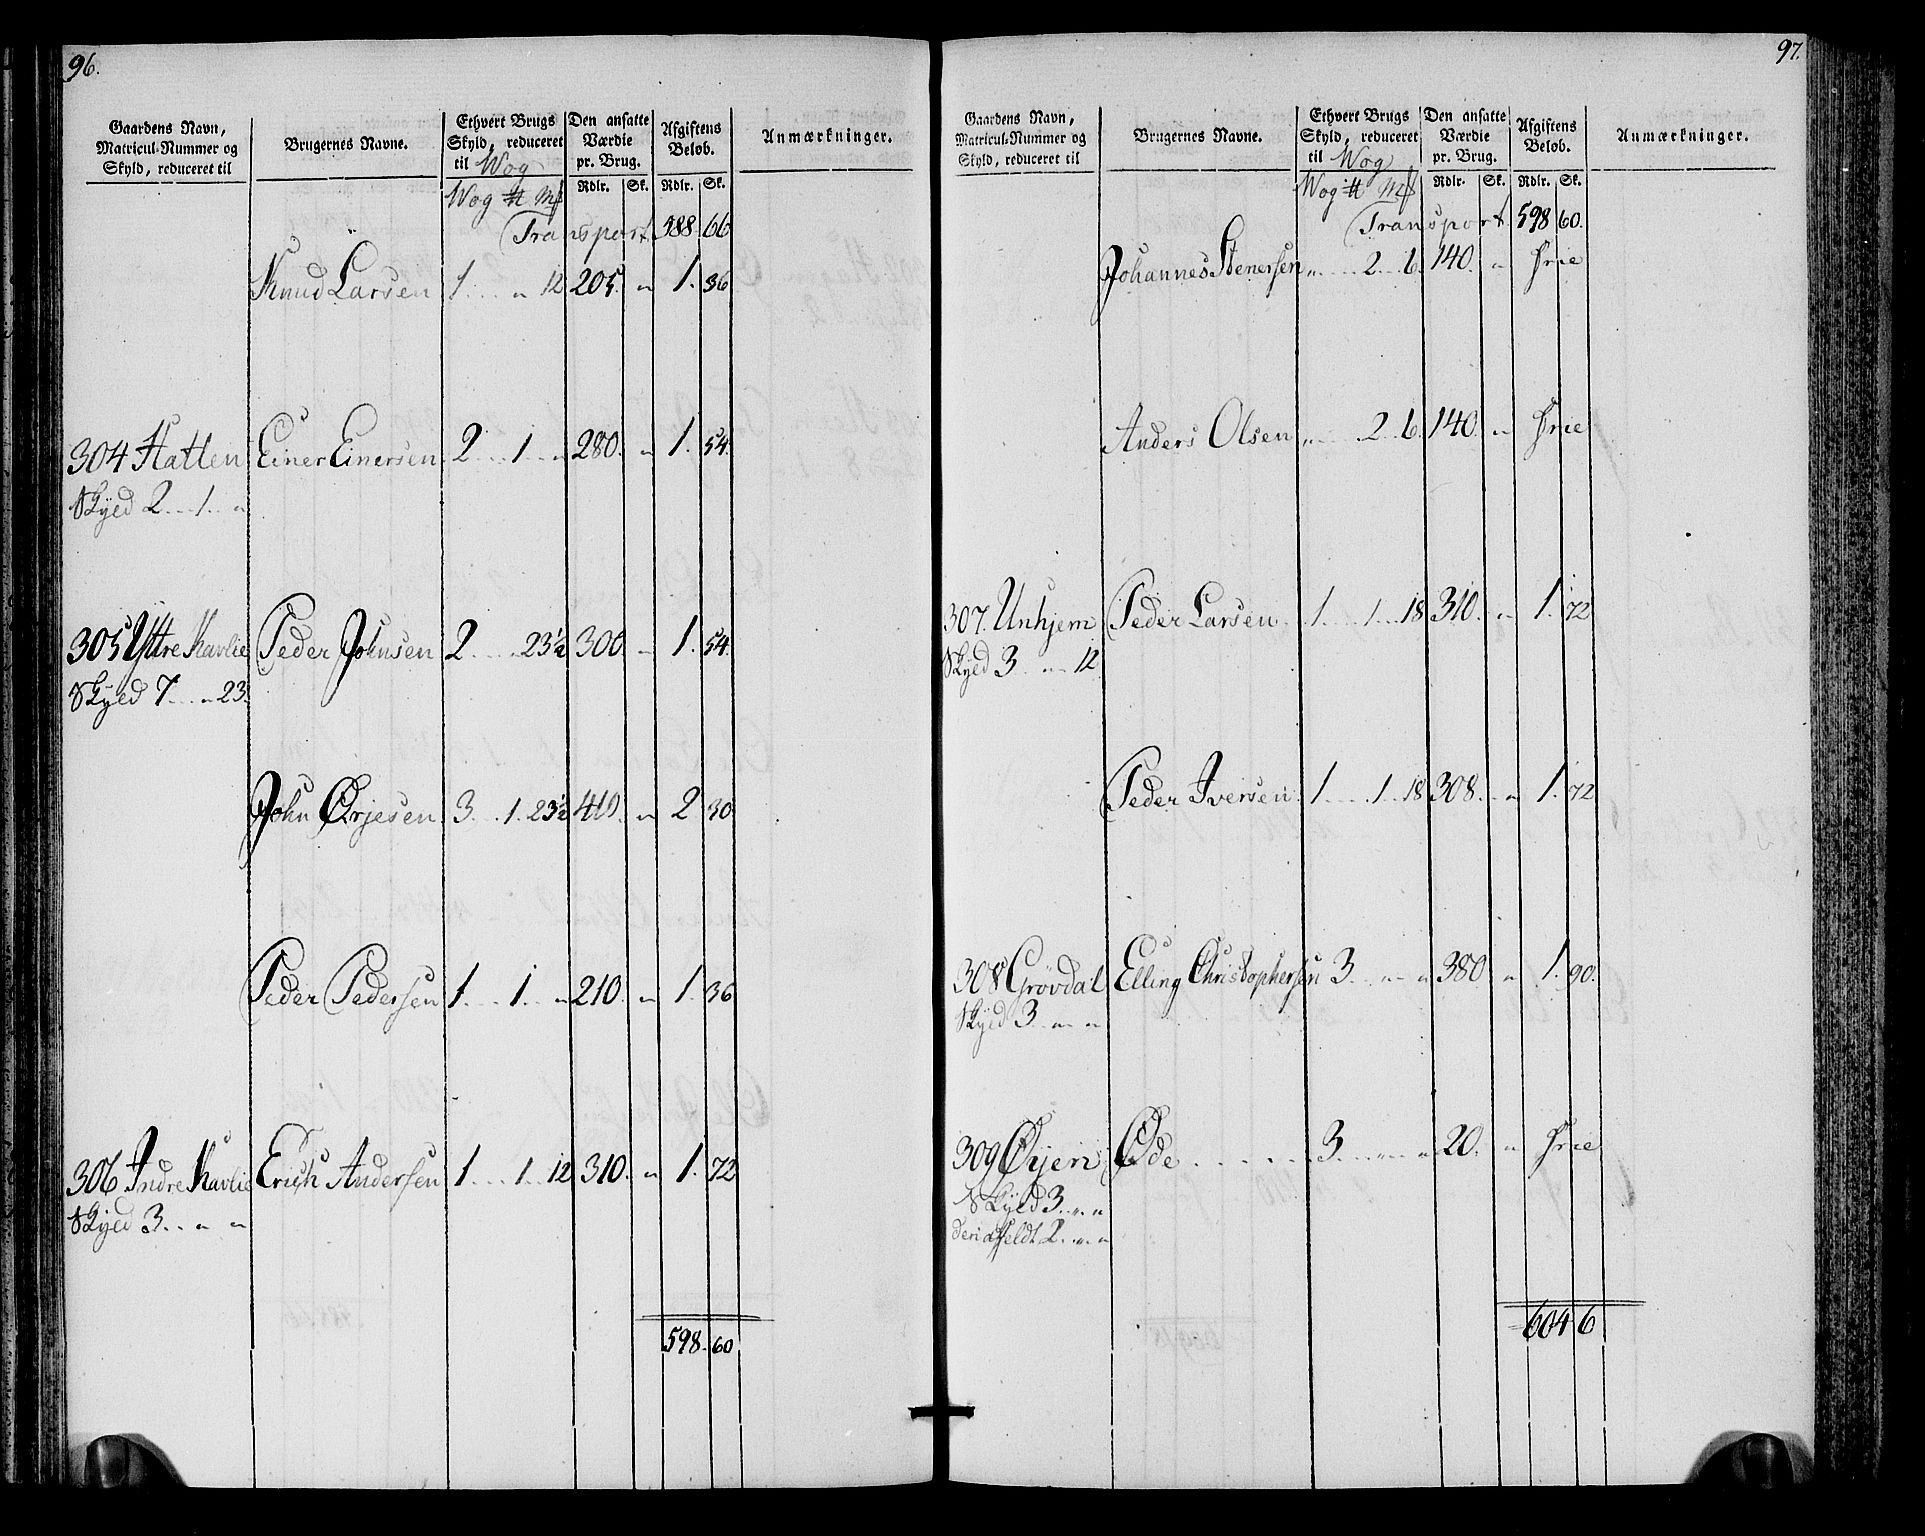 96.
Gaardens Navn, Matricul-Nummer og Skyld, reduceret til
Brugernes Navne.
Ethvert Brugs Skyld, reduceret til Wog
Den ansatte Værdie pr. Brug.
Afgiftens Beløb.
Anmærkninger.
Wog ₶ Mk Rdlr. Sk. Rdlr. Sk.
Transport 588 66
Knud Larsen 1 " 12 205. " 1. 36
304 Hatlen Einer Einersen 2 1 " 280. " 1. 54.
Skyld 2 1 "
305 Yttre Kavlie Peder Johnsen 2 23½ 300. " 1. 54.
Skyld 7 " 23.
John Ørjesen 3 1 23½ 410. " 2 30
Peder Pedersen 1 1 " 210. " 1. 36
306 Indre Kavlie Erich Andersen 1 1 12 310. " 1. 72
Skyld 3 " "
598. 60
97.
Gaardens Navn, Matricul-Nummer og Skyld, reduceret til
Brugernes Navne.
Ethvert Brugs Skyld, reduceret til Wog
Den ansatte Værdie pr. Brug.
Afgiftens Beløb.
Anmærkninger.
Wog ₶ Mk Rdlr. Sk. Rdlr. Sk.
Transport 598 60.
Johannes Stenersen " 2 6. 140. " frie
Anders Olsen " 2 6. 140. " frie
307. Unhjem Peder Larsen 1 1 18 310. " 1. 72
Skyld 3 " 12
Peder Iversen 1 1 18 308. " 1. 72
308 Grøvdal Elling Christophersen 3 " " 380 " 1. 90.
Skyld 3 " "
309 Ørjen Øde 3 " " 20. " frie
Skyld 3 " "
deraf feldt 2 " "
604 6